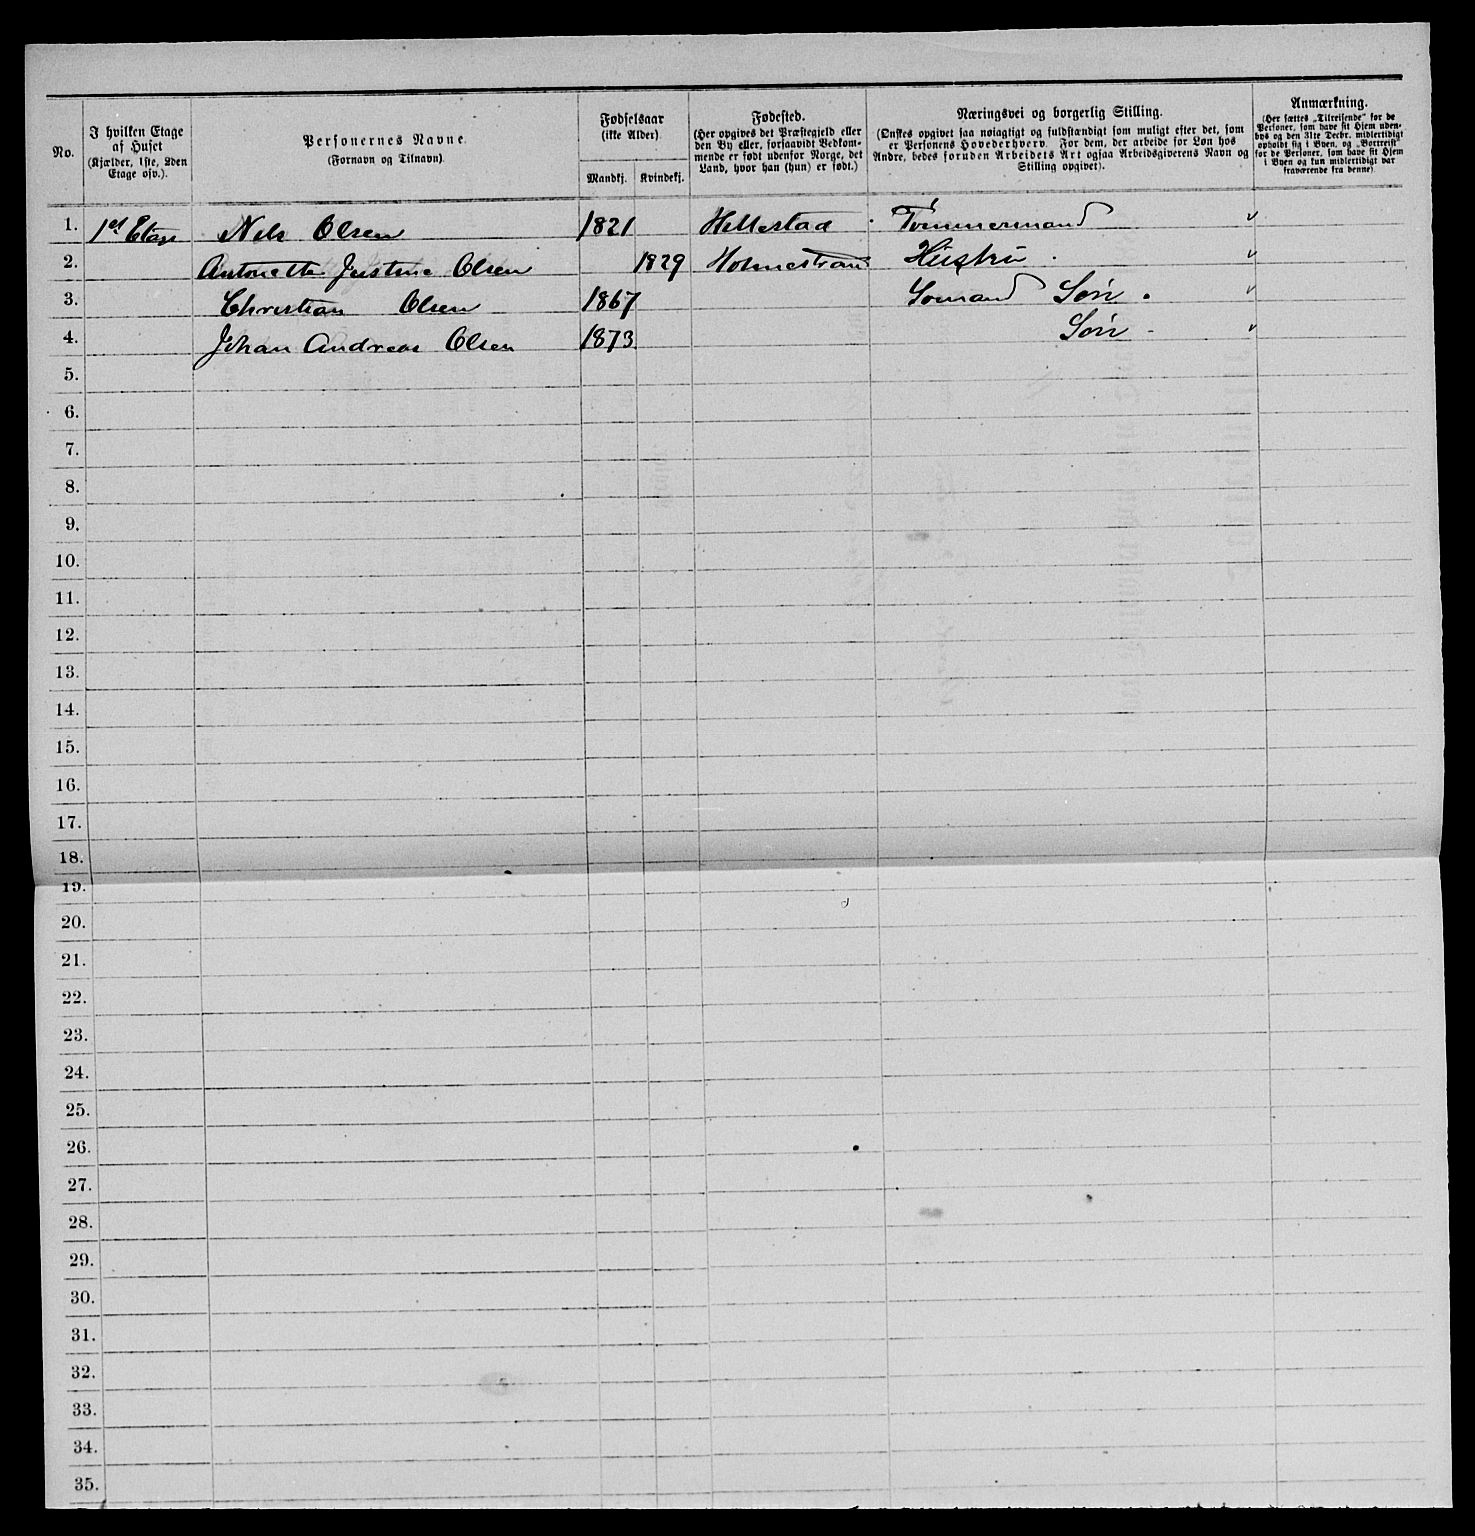 No.
I hvilken Etage
af Huset
(Kjælder, 1ste, 2den
Etage osv.).
Personernes Navne.
(Fornavn og Tilnavn).
Fødselsaar
(ikke Alder).
Mandkj. Kvindekj.
Fødested.
(Her opgives det Præstegjeld eller
den By eller, forsaavidt Vedkom-
mende er født udenfor Norge, det
Land, hvor han (hun) er født.)
Næringsvei og borgerlig Stilling.
(Ønskes opgivet saa nøiagtigt og fuldstændigt som muligt efter det, som
er Personens Hovederhverv. For dem, der arbeide for Løn hos
Andre, bedes foruden Arbeidets Art ogsaa Arbeidsgiverens Navn og
Stilling opgivet).
Anmærkning.
(Her sættes „Tilreisende“ for de
Personer, som have sit Hjem uden-
bys og den 31te Decbr. midlertidigt
opholdt sig i Byen, og „Bortreist“
for de Personer, som have sit Hjem
i Byen og kun midlertidigt var
fraværende fra denne)
1. 1st Etage Nils Olsen 1821 Hillestad Tømmermand
2. Antonette Justine Olsen 1829 Holmestrand Hustru
3. Christian Olsen 1867 Sømand Søn
4. Johan Andreas Olsen 1873 Søn
5.
6.
7.
8.
9.
10.
11.
12.
13.
14.
15.
16.
17.
18.
19.
20.
21.
22.
23.
24.
25.
26.
27.
28.
29.
30.
31.
32.
33.
34.
35.